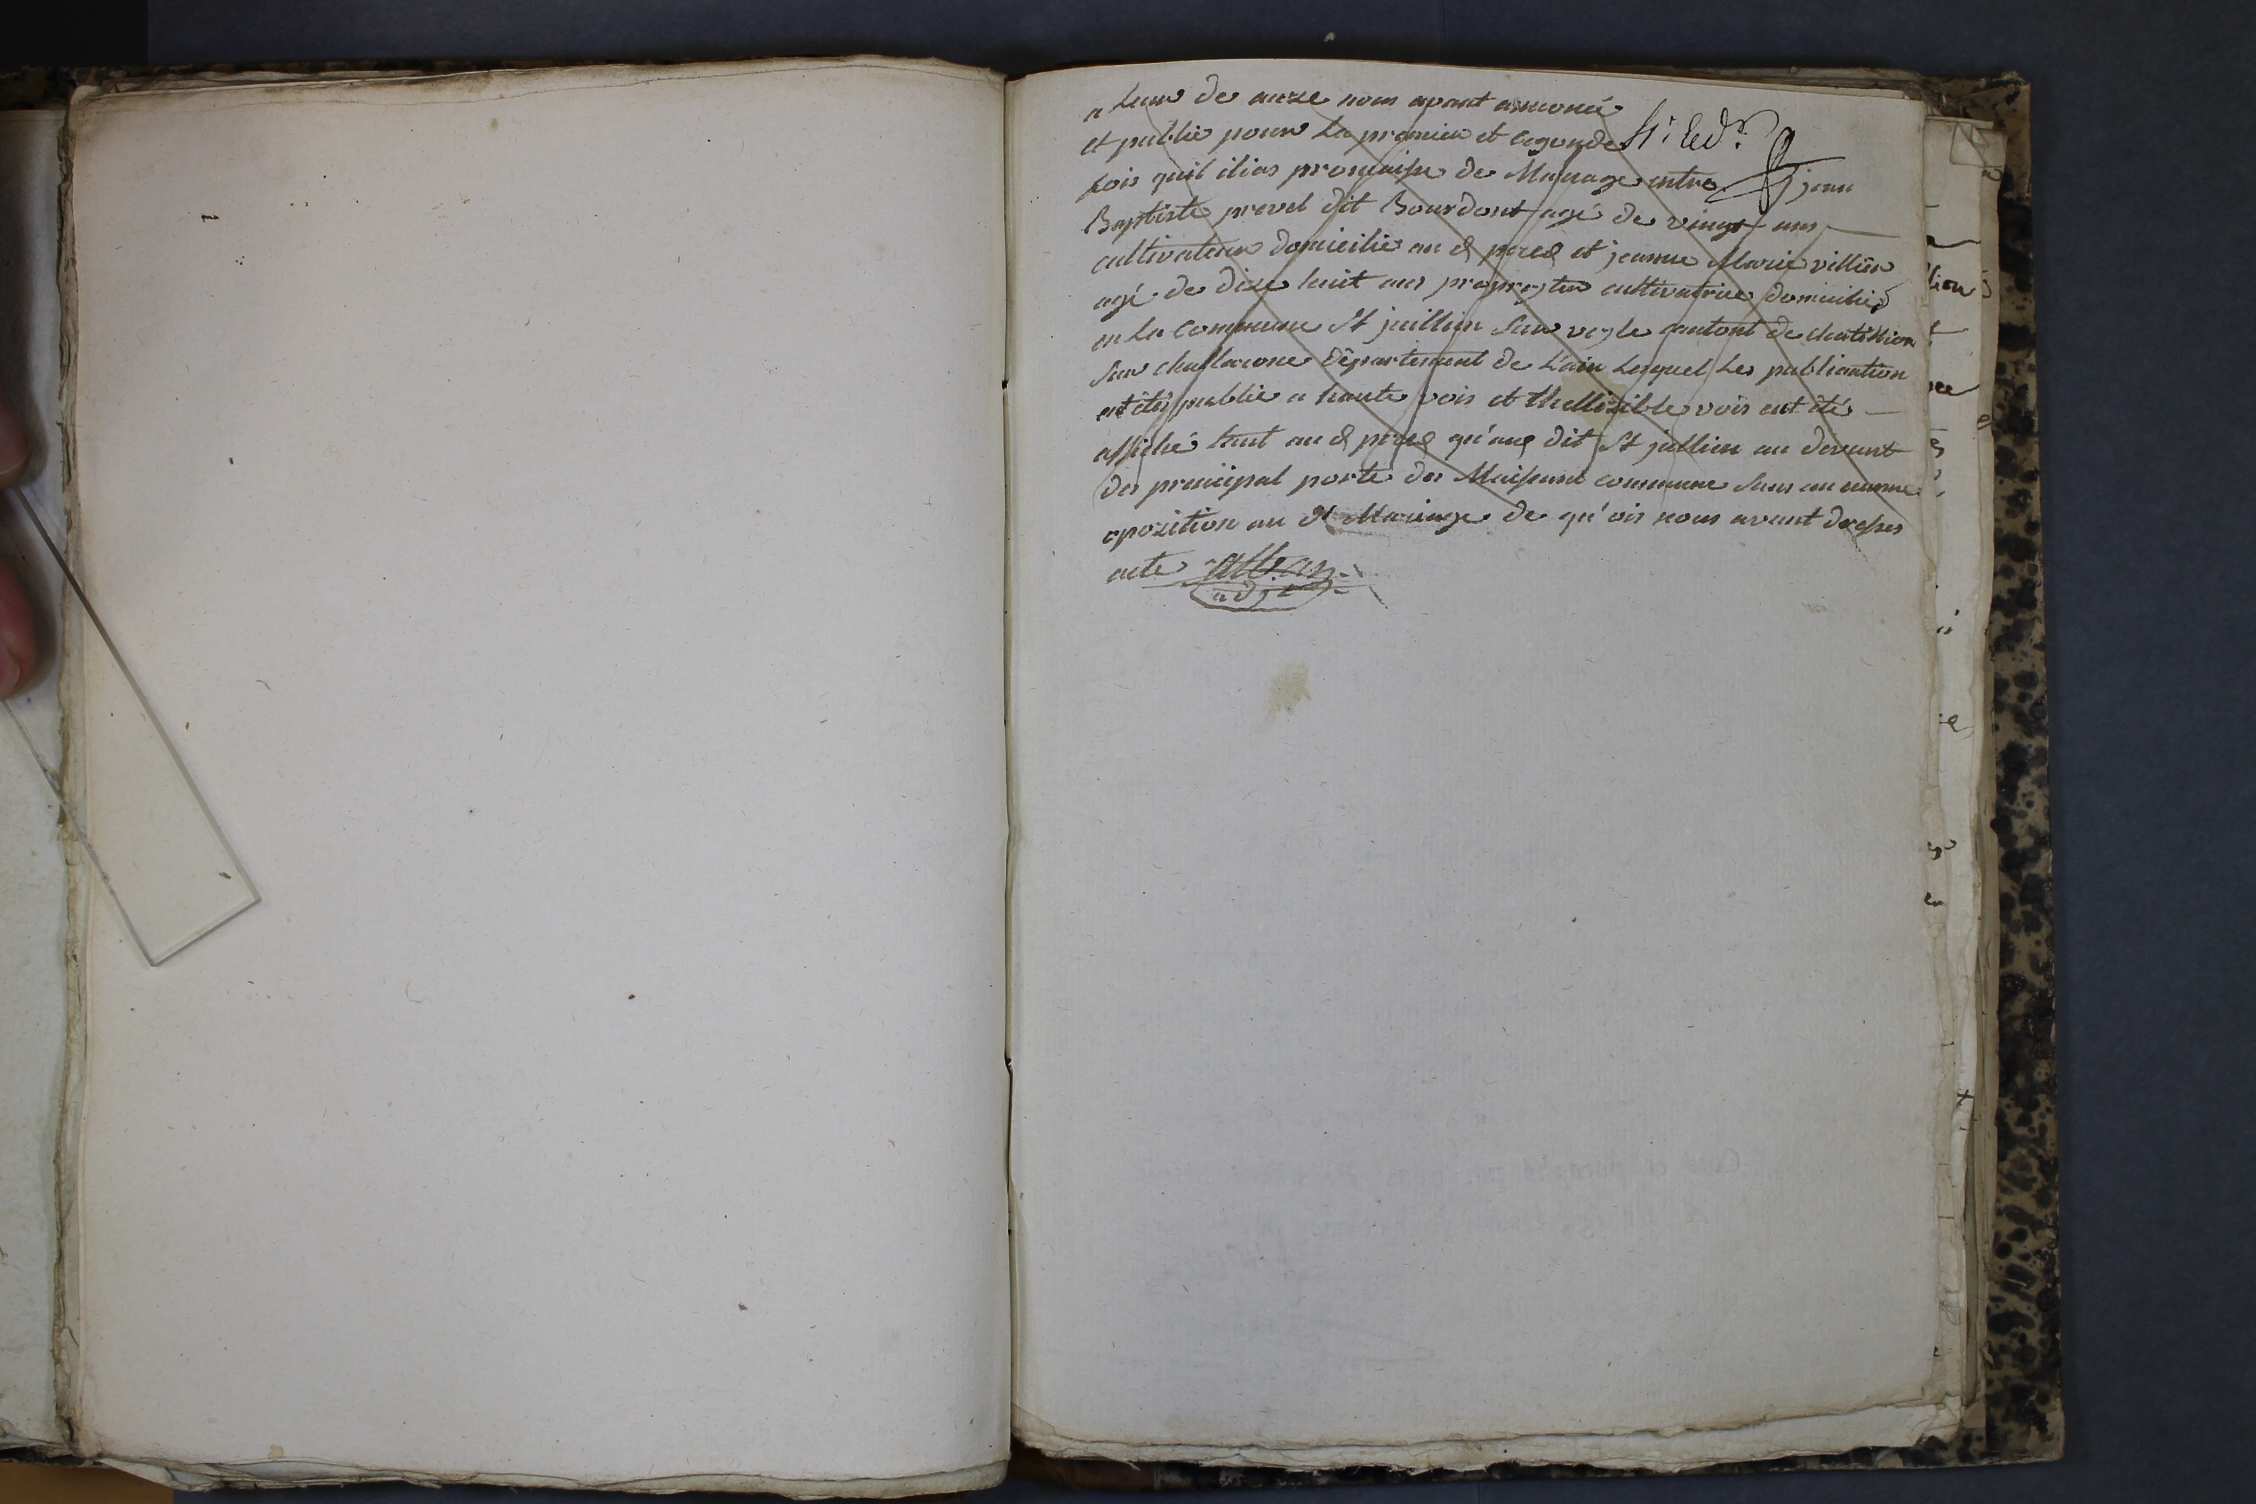 a leur de onze nous avont annoncé
et publié pour La premier et cegonde
fois quil ilias promaisse de Mariage entre jean
Baptiste prevel dit Bourdont agé de vingt ans
cultivateur domicilié au d perex et jeanne Marie villien
agé de dixe huit ans cultivatrice domicilié
en La commune St jullien Sur veyle cantont de chatillion
Sur challarone Département de L'ain Lesquel Les publication
ent été publié a haute vois et vois ent été
affiché tant au d perex qu'aux dit St jullien au devant
des principal porte des Maisont commune Sans au cunne
opozition au dt Mariage de qu'ois nous avant dresses
acte
adjt